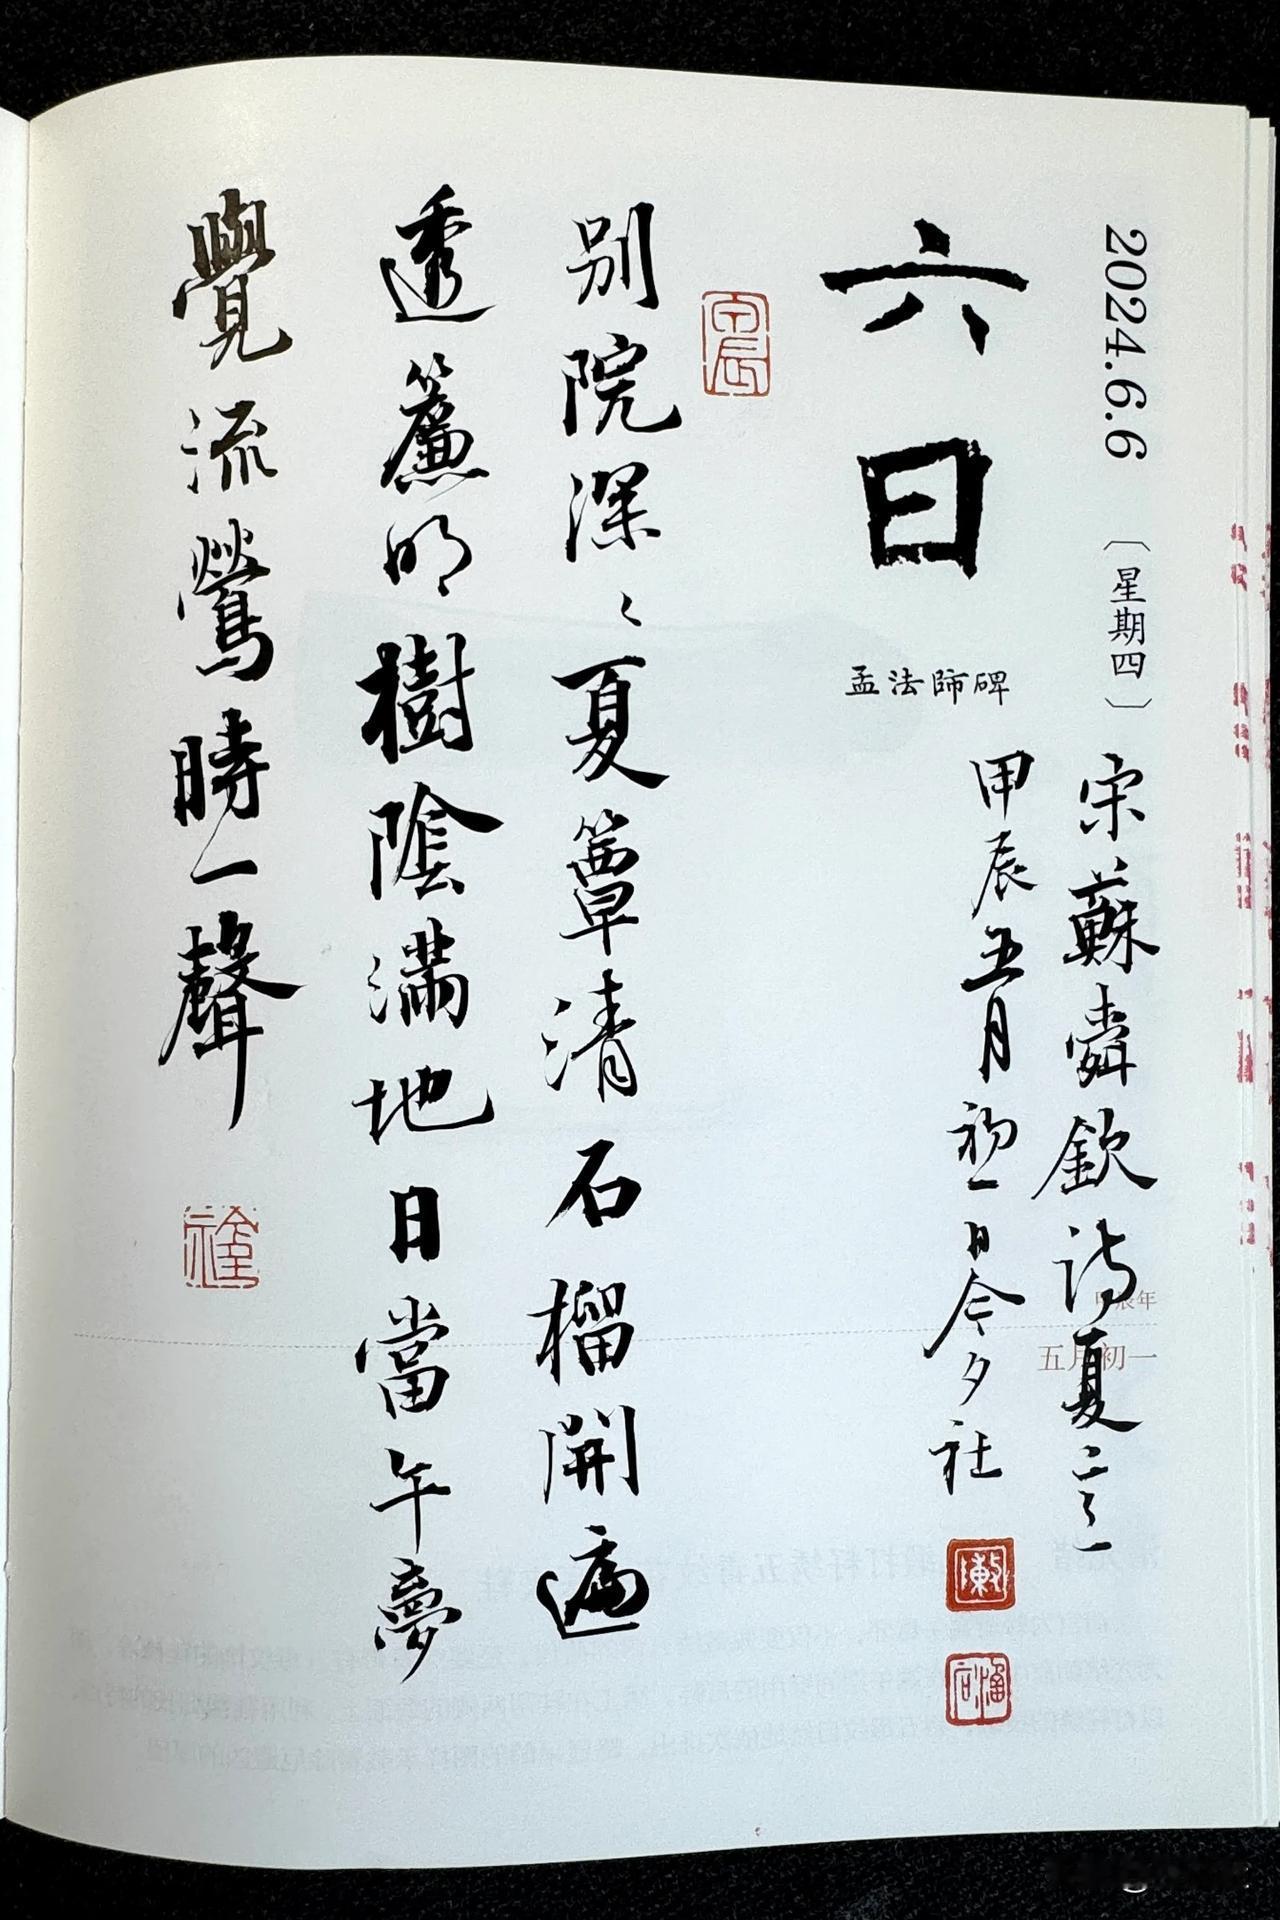 2024.6.6〔星期四〕
宋蘇舜欽詩夏意
甲辰年
五月初一
六日
孟法師碑
甲辰五月初一日今夕社
别院深〻夏簟清石榴開遍
透簾明樹陰滿地日當午夢
覺流鶯時一聲